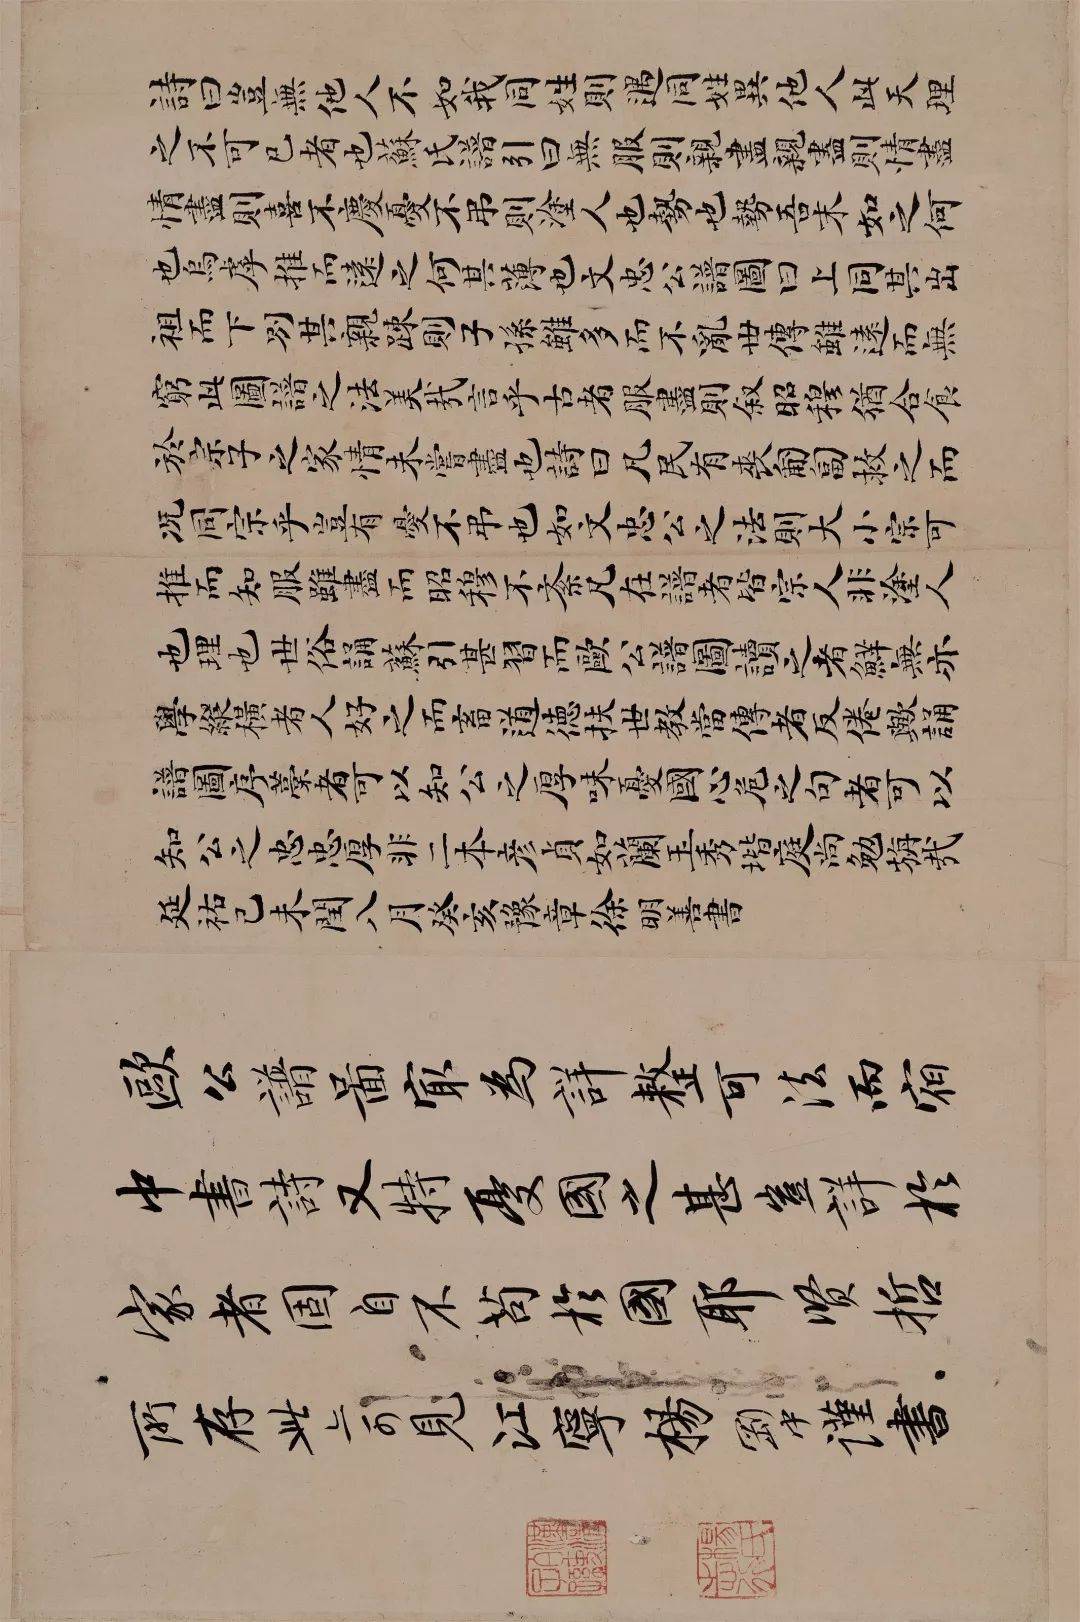 詩曰豈無他人不如我同姓則遇同姓異他人此天理
之不可已者也蘇氏譜引曰無服則親盡親盡則情盡
情盡則喜不慶憂不吊則塗人也勢也勢吾末如之何
也烏虖推而遠之何其薄也文忠公譜圖曰上同其出
祖而下別其親踈則子孫雖多而不亂世傳雖遠而無
窮此圖譜之法美哉言乎古者服盡則叙昭穆猶合食
於宗子之家情未嘗盡也詩曰凡民有喪匍匐救之而
况同宗乎豈有憂不吊也如文忠公之法則大小宗可
推而知服雖盡而昭穆不紊凡在譜者皆宗人非塗人
也理也世俗誦蘇引甚習而歐公譜圖讀之者鮮無亦
學縱橫者人好之而畜道德扶世教當傳者反倦歟誦
譜圖序藁者可以知公之厚味憂國心危之句者可以
知公之忠忠厚非二本彦貞如蘭玉秀堦庭尚勉旃哉
延祐己未閏八月癸亥豫章徐明善書
歐公譜圖㝡為詳整可法而宿
中書詩又特憂國之甚豈詳於
家者固自不苟於國耶賢哲
所存此亦可見江寧楊剛中謹書